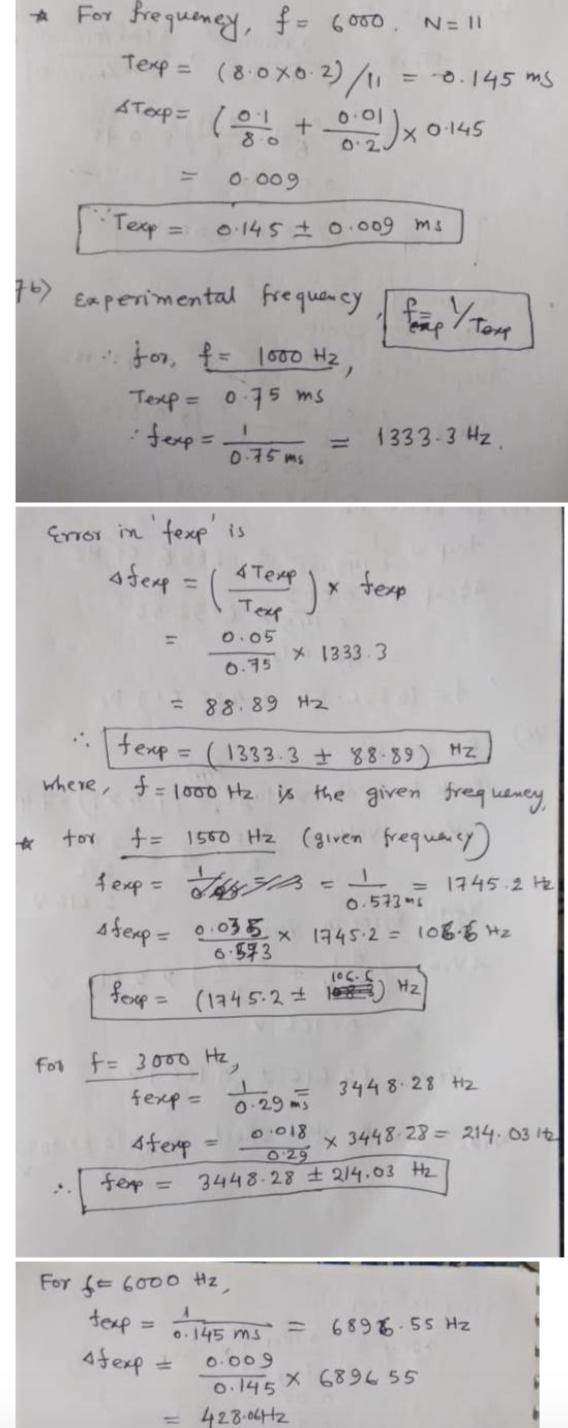 * For frequency, f = 6000. N = 11
Texp = (8.0 × 0.2)/11 = 0.145 ms
ΔTexp = (0.1/8.0 + 0.01/0.2) × 0.145
= 0.009
∵ Texp = 0.145 ± 0.009 ms
7b) Experimental frequency, fexp = 1/Texp
∴ for, f = 1000 Hz,
Texp = 0.75 ms
∴ fexp = 1/0.75 ms = 1333.3 Hz.
Error in 'fexp' is
Δfexp = (ΔTexp/Texp) × fexp
= 0.05/0.75 × 1333.3
= 88.89 Hz
∴ fexp = (1333.3 ± 88.89) Hz
where, f = 1000 Hz is the given frequency,
* for f = 1500 Hz (given frequency)
fexp = = 1/0.573 ms = 1745.2 Hz
Δfexp = 0.035/0.573 × 1745.2 = 106.6 Hz
fexp = (1745.2 ± 106.6) Hz
For f = 3000 Hz,
fexp = 1/0.29 ms = 3448.28 Hz
Δfexp = 0.018/0.29 × 3448.28 = 214.03 Hz
∴ fexp = 3448.28 ± 214.03 Hz
For f = 6000 Hz,
fexp = 1/0.145 ms = 6896.55 Hz
Δfexp = 0.009/0.145 × 6896 55
= 428.06Hz